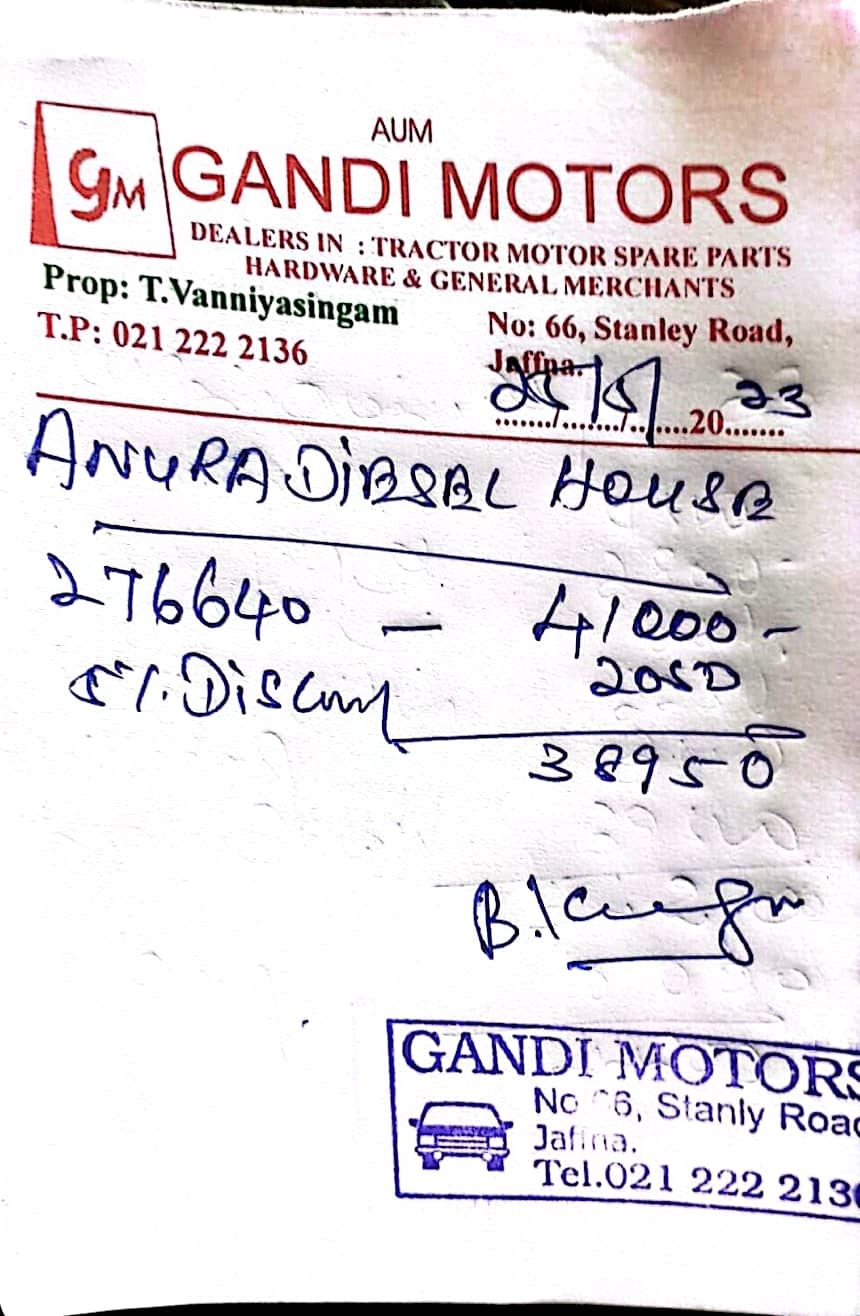 AUM
GM GANDI MOTORS
DEALERS IN : TRACTOR MOTOR SPARE PARTS
HARDWARE & GENERAL MERCHANTS
Prop: T.Vanniyasingam
T.P: 021 222 2136
No: 66, Stanley Road,
Jaffna.
25/5/ 2023
ANURA DIESEL HOUSE
276640 – 41000 -
2050
5%. Discount
38950
GANDI MOTORS
No 66, Stanly Road
Jaffna.
Tel.021 222 2136